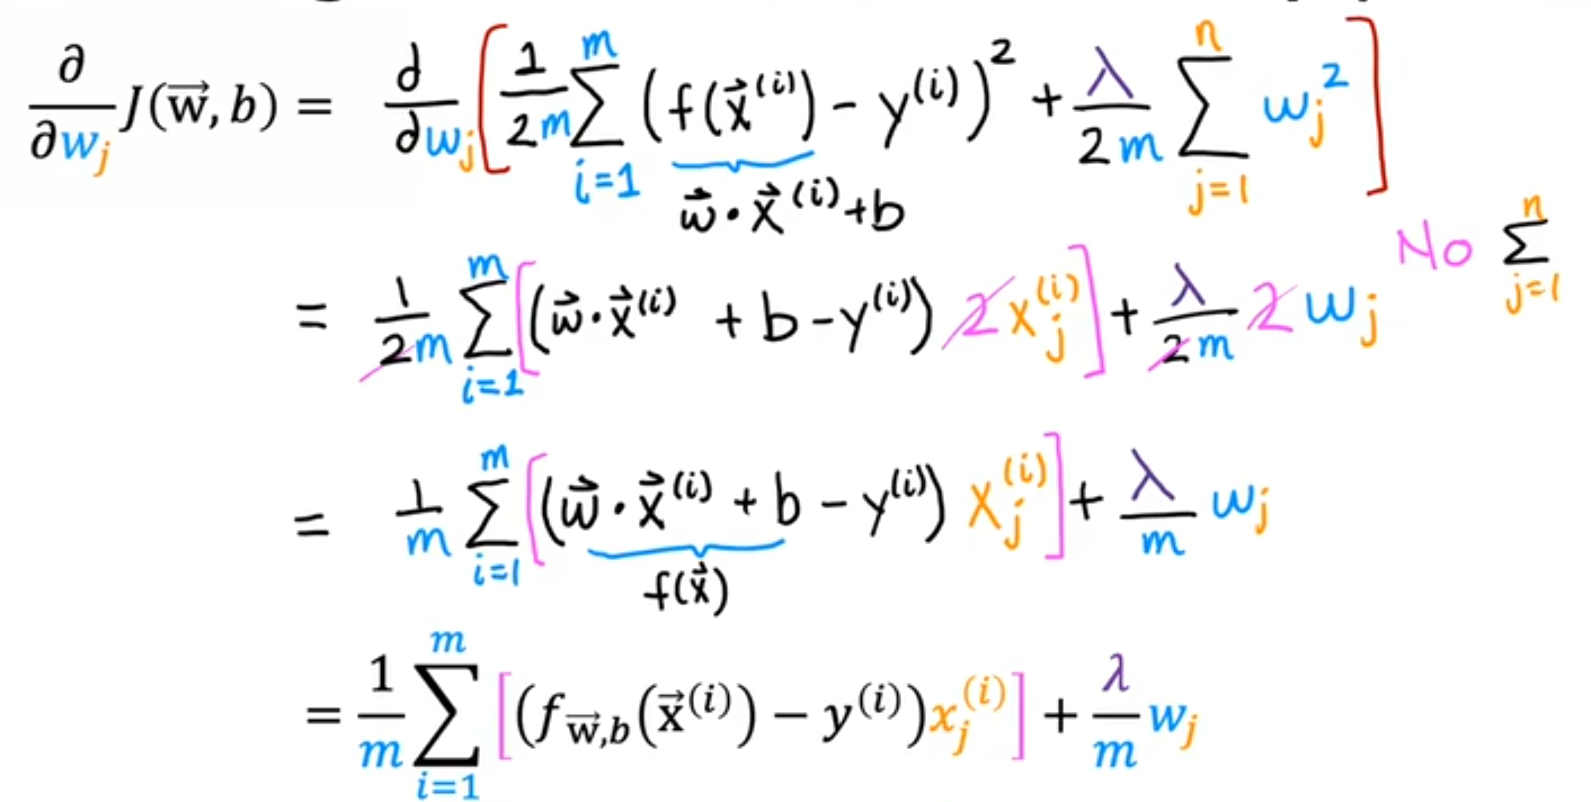 ∂/∂w_j J(w⃗, b) = ∂/∂w_j [ 1/2m ∑_{i=1}^{m} (f(x⃗^(i)) - y^(i))^2 + λ/2m ∑_{j=1}^{n} w_j^2 ]
w⃗ · x⃗^(i) + b
= 1/2m ∑_{i=1}^{m} [ (w⃗ · x⃗^(i) + b - y^(i)) 2 x_j^(i) ] + λ/2m 2 w_j No ∑_{j=1}^{n}
= 1/m ∑_{i=1}^{m} [ (w⃗ · x⃗^(i) + b - y^(i)) x_j^(i) ] + λ/m w_j
f(x⃗)
= 1/m ∑_{i=1}^{m} [ (f_{w⃗,b}(x⃗^(i)) - y^(i)) x_j^(i) ] + λ/m w_j